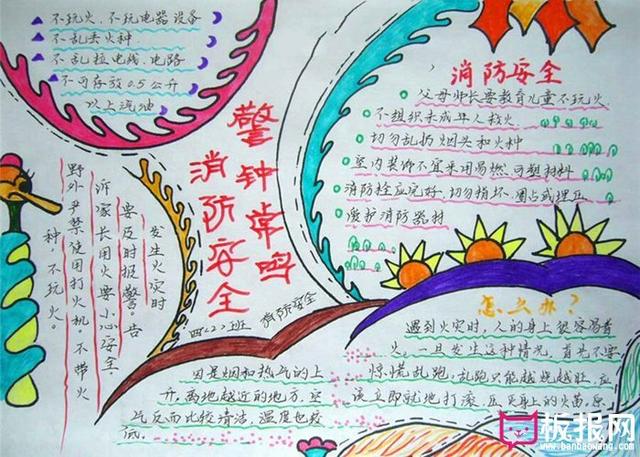 不玩火、不玩电器设备
不乱丢火种
不乱拉电线、电路
不可存放0.5公斤
以上汽油
警钟常鸣
消防安全
消防安全
父母师长要教育儿童不玩火
不组织未成年人救火
切勿乱扔烟头和火种
室内装饰不宜采用易燃、可塑材料
消防栓应完好、切勿损坏、圈占或埋压
爱护消防器材
发生火灾时
要及时报警告
诉家长用火要小心安全。
野外严禁使用打火机,不带火
种,不玩火。
四(2)班
消防安全
因是烟和热气的上
升,离地越近的地方,空
气反而比较清洁,温度也较
低。
怎么办?
遇到火灾时,人的身上很容易着
火。一旦发生这种情况,首先不要
惊慌乱跑,乱跑只能越烧越旺,应
该立即就地打滚,压灭身上的火苗,
板报网
www.banbaowang.com